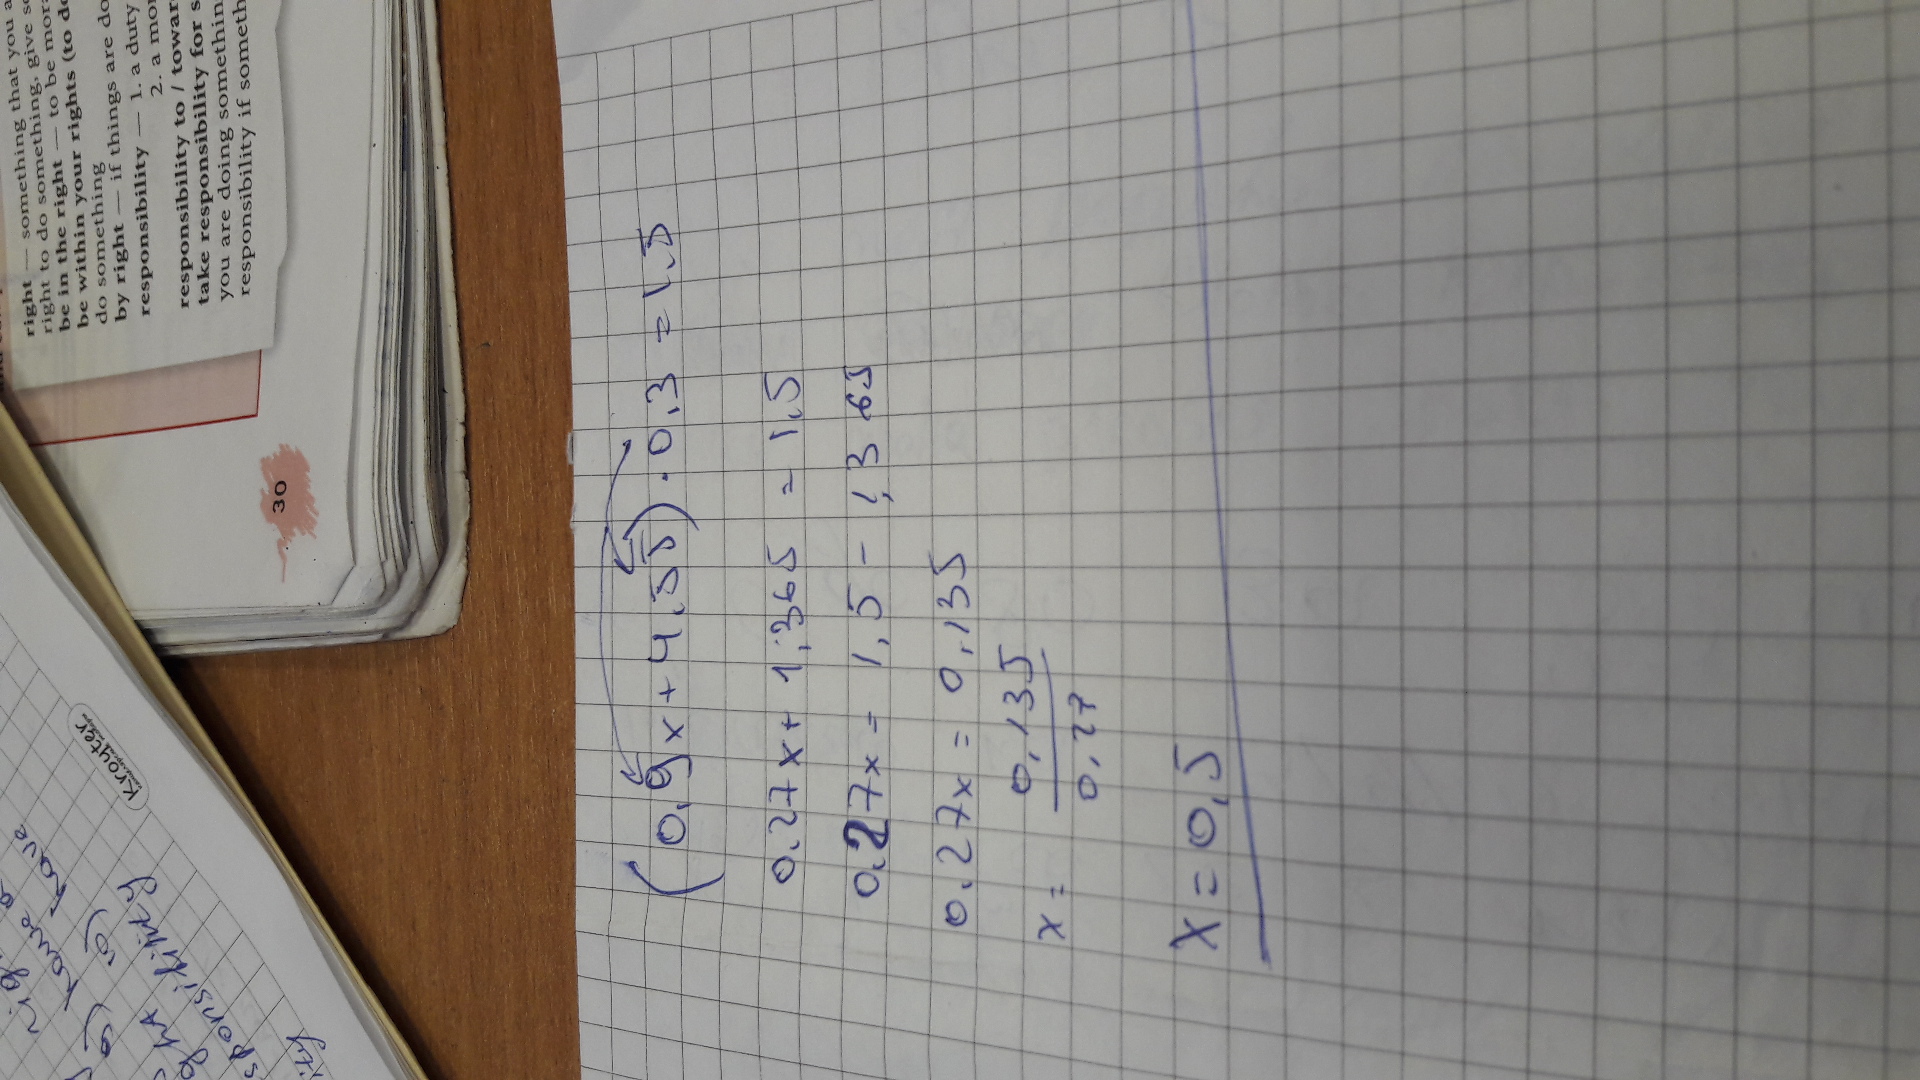 right — something that you a
right to do something, give so
be in the right — to be mora
be within your rights (to do
do something
by right — if things are do
responsibility — 1. a duty
2. a mor
responsibility to / toward
take responsibility for s
you are doing somethin
responsibility if someth
30
Kroyter
a) have a
b) have
(0,9x+4,55)·0,3=1,5
0,27x+1,365=1,5
0,27x=1,5-1,365
0,27x=0,135
x=0,135/0,27
x=0,5